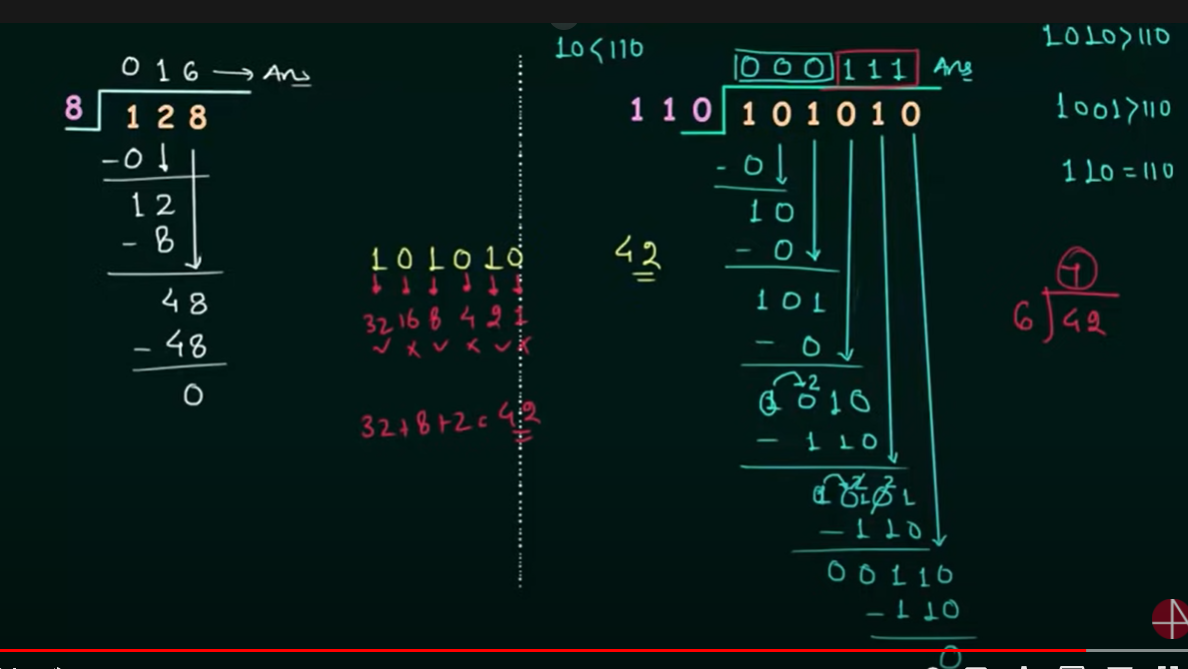 0 1 6 → Ans
8 1 2 8
- 0
1 2
- 8
4 8
- 4 8
0
1 0 1 0 1 0
32 16 8 4 2 1
✓ x ✓ x ✓ x
32+8+2=42
10<110
42
0 0 0 1 1 1 Ans
1 1 0 1 0 1 0 1 0
- 0
1 0
- 0
1 0 1
- 0
2
1 0 1 0
- 1 1 0
2 2
1 0 1 0 1
- 1 1 0
0 0 1 1 0
- 1 1 0
0
1010>110
1001>110
110=110
7
6 42